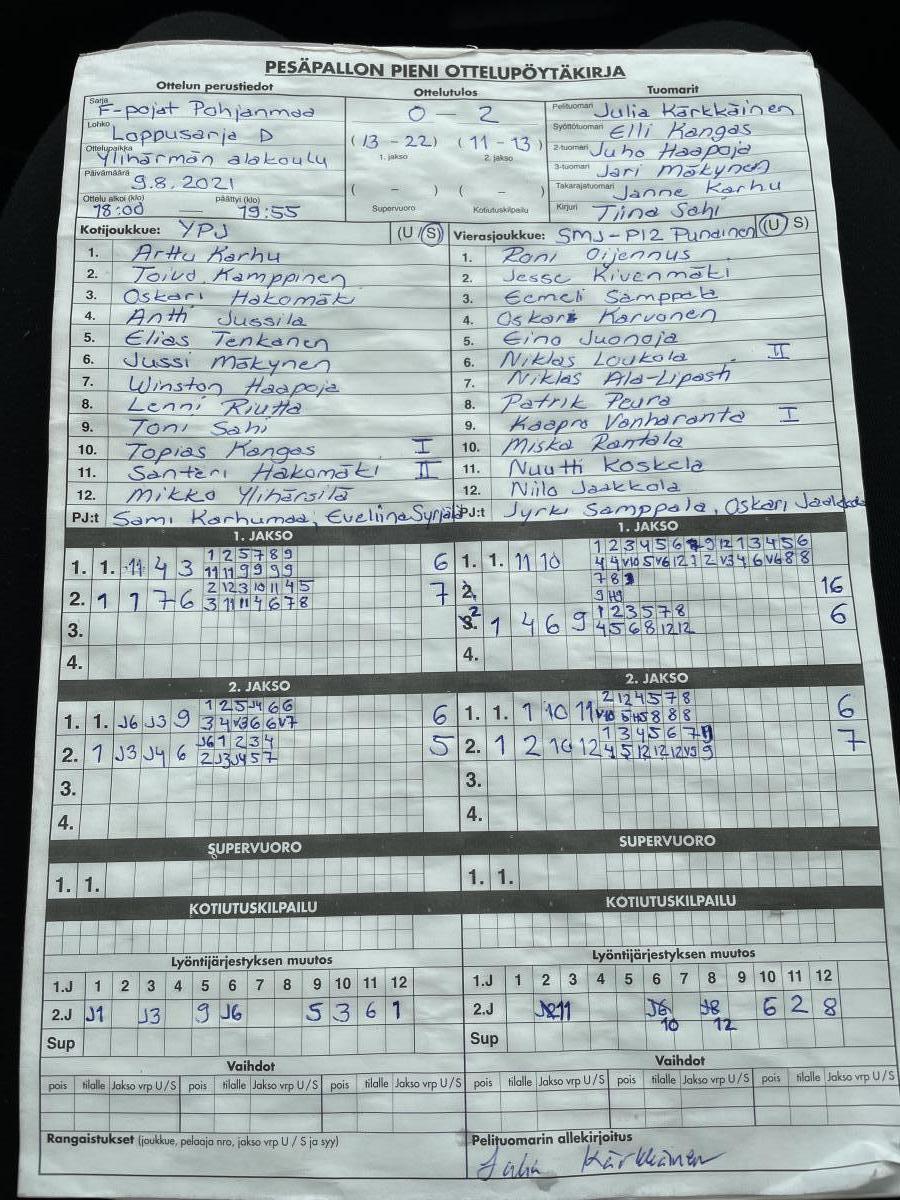 PESÄPALLON PIENI OTTELUPÖYTÄKIRJA
Ottelun perustiedot
Sarja F-pojat Pohjanmaa
Lohko Loppusarja D
Ottelupaikka Ylihärmän alakoulu
Päivämäärä 9.8.2021
Ottelu alkoi (klo) päättyi (klo)
18:00 — 19:55
Ottelutulos
0 - 2
(13 - 22) (11 - 13)
1. jakso 2. jakso
( - ) ( - )
Supervuoro Kotiutuskilpailu
Tuomarit
Pelituomari Julia Kärkkäinen
Syöttötuomari Elli Kangas
2-tuomari Juho Haapoja
3-tuomari Jari Mäkynen
Takarajatuomari Janne Karhu
Kirjuri Tiina Sahi
Kotijoukkue: YPJ (U / S)
1. Arttu Karhu
2. Toivo Kamppinen
3. Oskari Hakomäki
4. Antti Jussila
5. Elias Tenkanen
6. Jussi Mäkynen
7. Winston Haapoja
8. Lenni Riutta
9. Toni Sahi
10. Topias Kangas I
11. Santeri Hakomäki II
12. Mikko Ylihärsilä
PJ:t Sami Karhumaa, Eveliina Syrjälä
Vierasjoukkue: SMJ-P12 Punainen (U / S)
1. Roni Oijennus
2. Jesse Kivenmäki
3. Eemeli Samppala
4. Oskari Karvonen
5. Eino Juonoja
6. Niklas Loukola II
7. Niklas Ala-Lipasti
8. Patrik Peura
9. Kaapro Vanharanta I
10. Miska Rantala
11. Nuutti Koskela
12. Niilo Jaakkola
PJ:t Jyrki Samppala, Oskari
1. JAKSO
1. 1. 11 4 3 1 2 5 7 8 9 6
11 11 9 9 9 9
2. 1 1 7 6 2 12 3 10 11 4 5 7
3 11 11 4 6 7 8
3.
4.
1. JAKSO
1. 1. 11 10 1 2 3 4 5 6 7 9 12 1 3 4 5 6
4 4 V10 5 V6 12 7 2 V3 4 6 V6 8 8
2. 7 8 16
9 H9
2 1 4 6 9 1 2 3 5 7 8 6
4 5 6 8 12 12
4.
2. JAKSO
1. 1. J6 J3 9 1 2 5 J4 6 6 6
3 4 V3 6 6 V7
2. 1 J3 J4 6 J6 1 2 3 4 5
2 J3 J4 5 7
3.
4.
2. JAKSO
1. 1. 1 10 11 2 12 4 5 7 8 6
V10 5 H5 8 8 8
2. 1 2 10 12 1 3 4 5 6 7 7
4 5 12 12 12 V5 9
3.
4.
SUPERVUORO
1. 1.
SUPERVUORO
1. 1.
KOTIUTUSKILPAILU
KOTIUTUSKILPAILU
Lyöntijärjestyksen muutos
1.J 1 2 3 4 5 6 7 8 9 10 11 12
2.J J1 J3 9 J6 5 3 6 1
Sup
Lyöntijärjestyksen muutos
1.J 1 2 3 4 5 6 7 8 9 10 11 12
2.J 11 J6 J8 6 2 8
10 12
Sup
Vaihdot
pois tilalle Jakso vrp U / S pois tilalle Jakso vrp U / S pois tilalle Jakso vrp U / S
Vaihdot
pois tilalle Jakso vrp U / S pois tilalle Jakso vrp U / S pois tilalle Jakso vrp U / S
Rangaistukset (joukkue, pelaaja nro, jakso vrp U / S ja syy)
Pelituomarin allekirjoitus
Julia Kärkkäinen